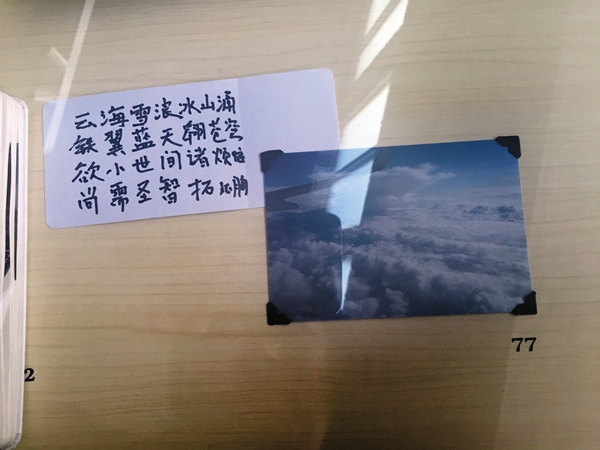 云海雪浪冰山涌
铁翼蓝天翱苍穹
欲小世间诸烦
尚需圣智拓心胸
77
2